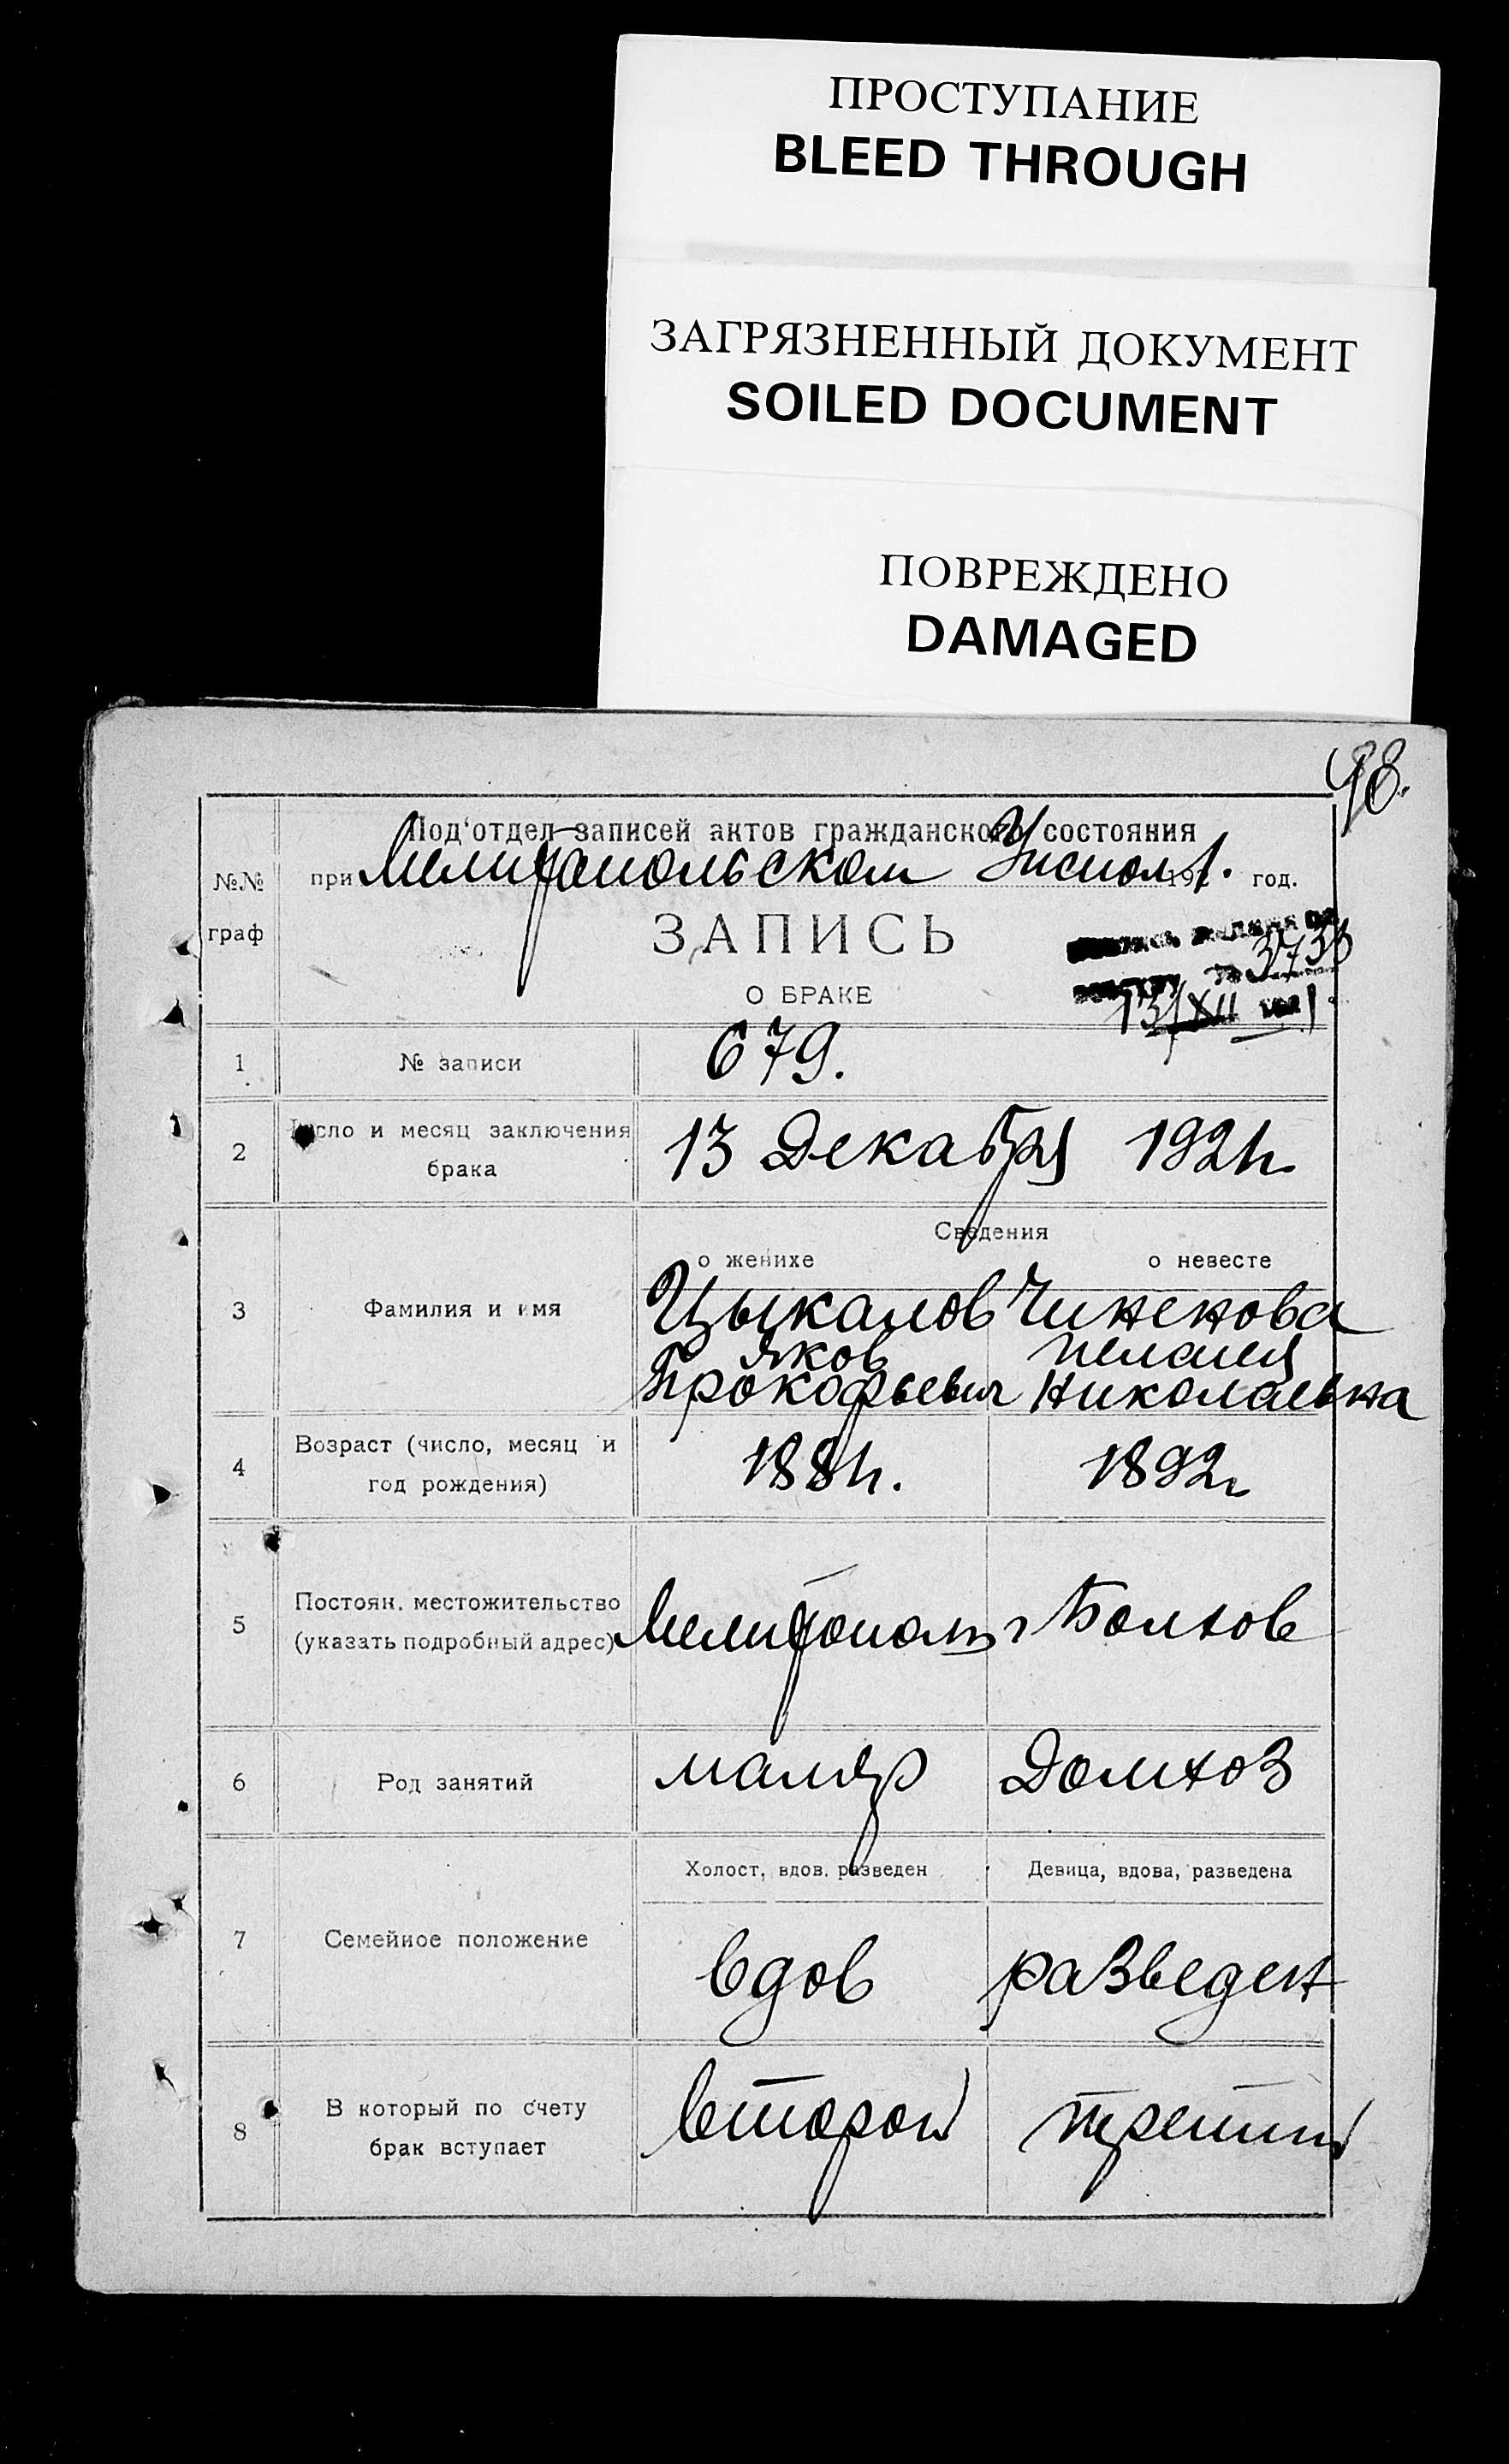 ПРОСТУПАНИЕ
BLEED THROUGH
ЗАГРЯЗНЕННЫЙ ДОКУМЕНТ
SOILED DOCUMENT
ПОВРЕЖДЕНО
DAMAGED
98.
Под'отдел записей актов гражданского состояния
№№ граф
при Мелитопольском Уисполк 192 1. год.
ЗАПИСЬ
3733
О БРАКЕ
13/XII 1
1 № записи 679.
2 Число и месяц заключения брака 13 Декабря 1921г.
Сведения
о женихе о невесте
3 Фамилия и имя Цыкалов Чиненова
Яков Пелагея
Прокофьевич Николаевна
4 Возраст (число, месяц и год рождения) 1881г. 1892г
5 Постоян. местожительство (указать подробный адрес) Мелитополь г Болхов
6 Род занятий маляр Домхоз
Холост, вдов. разведен Девица, вдова, разведена
7 Семейное положение вдов разведен
8 В который по счету брак вступает второй третий